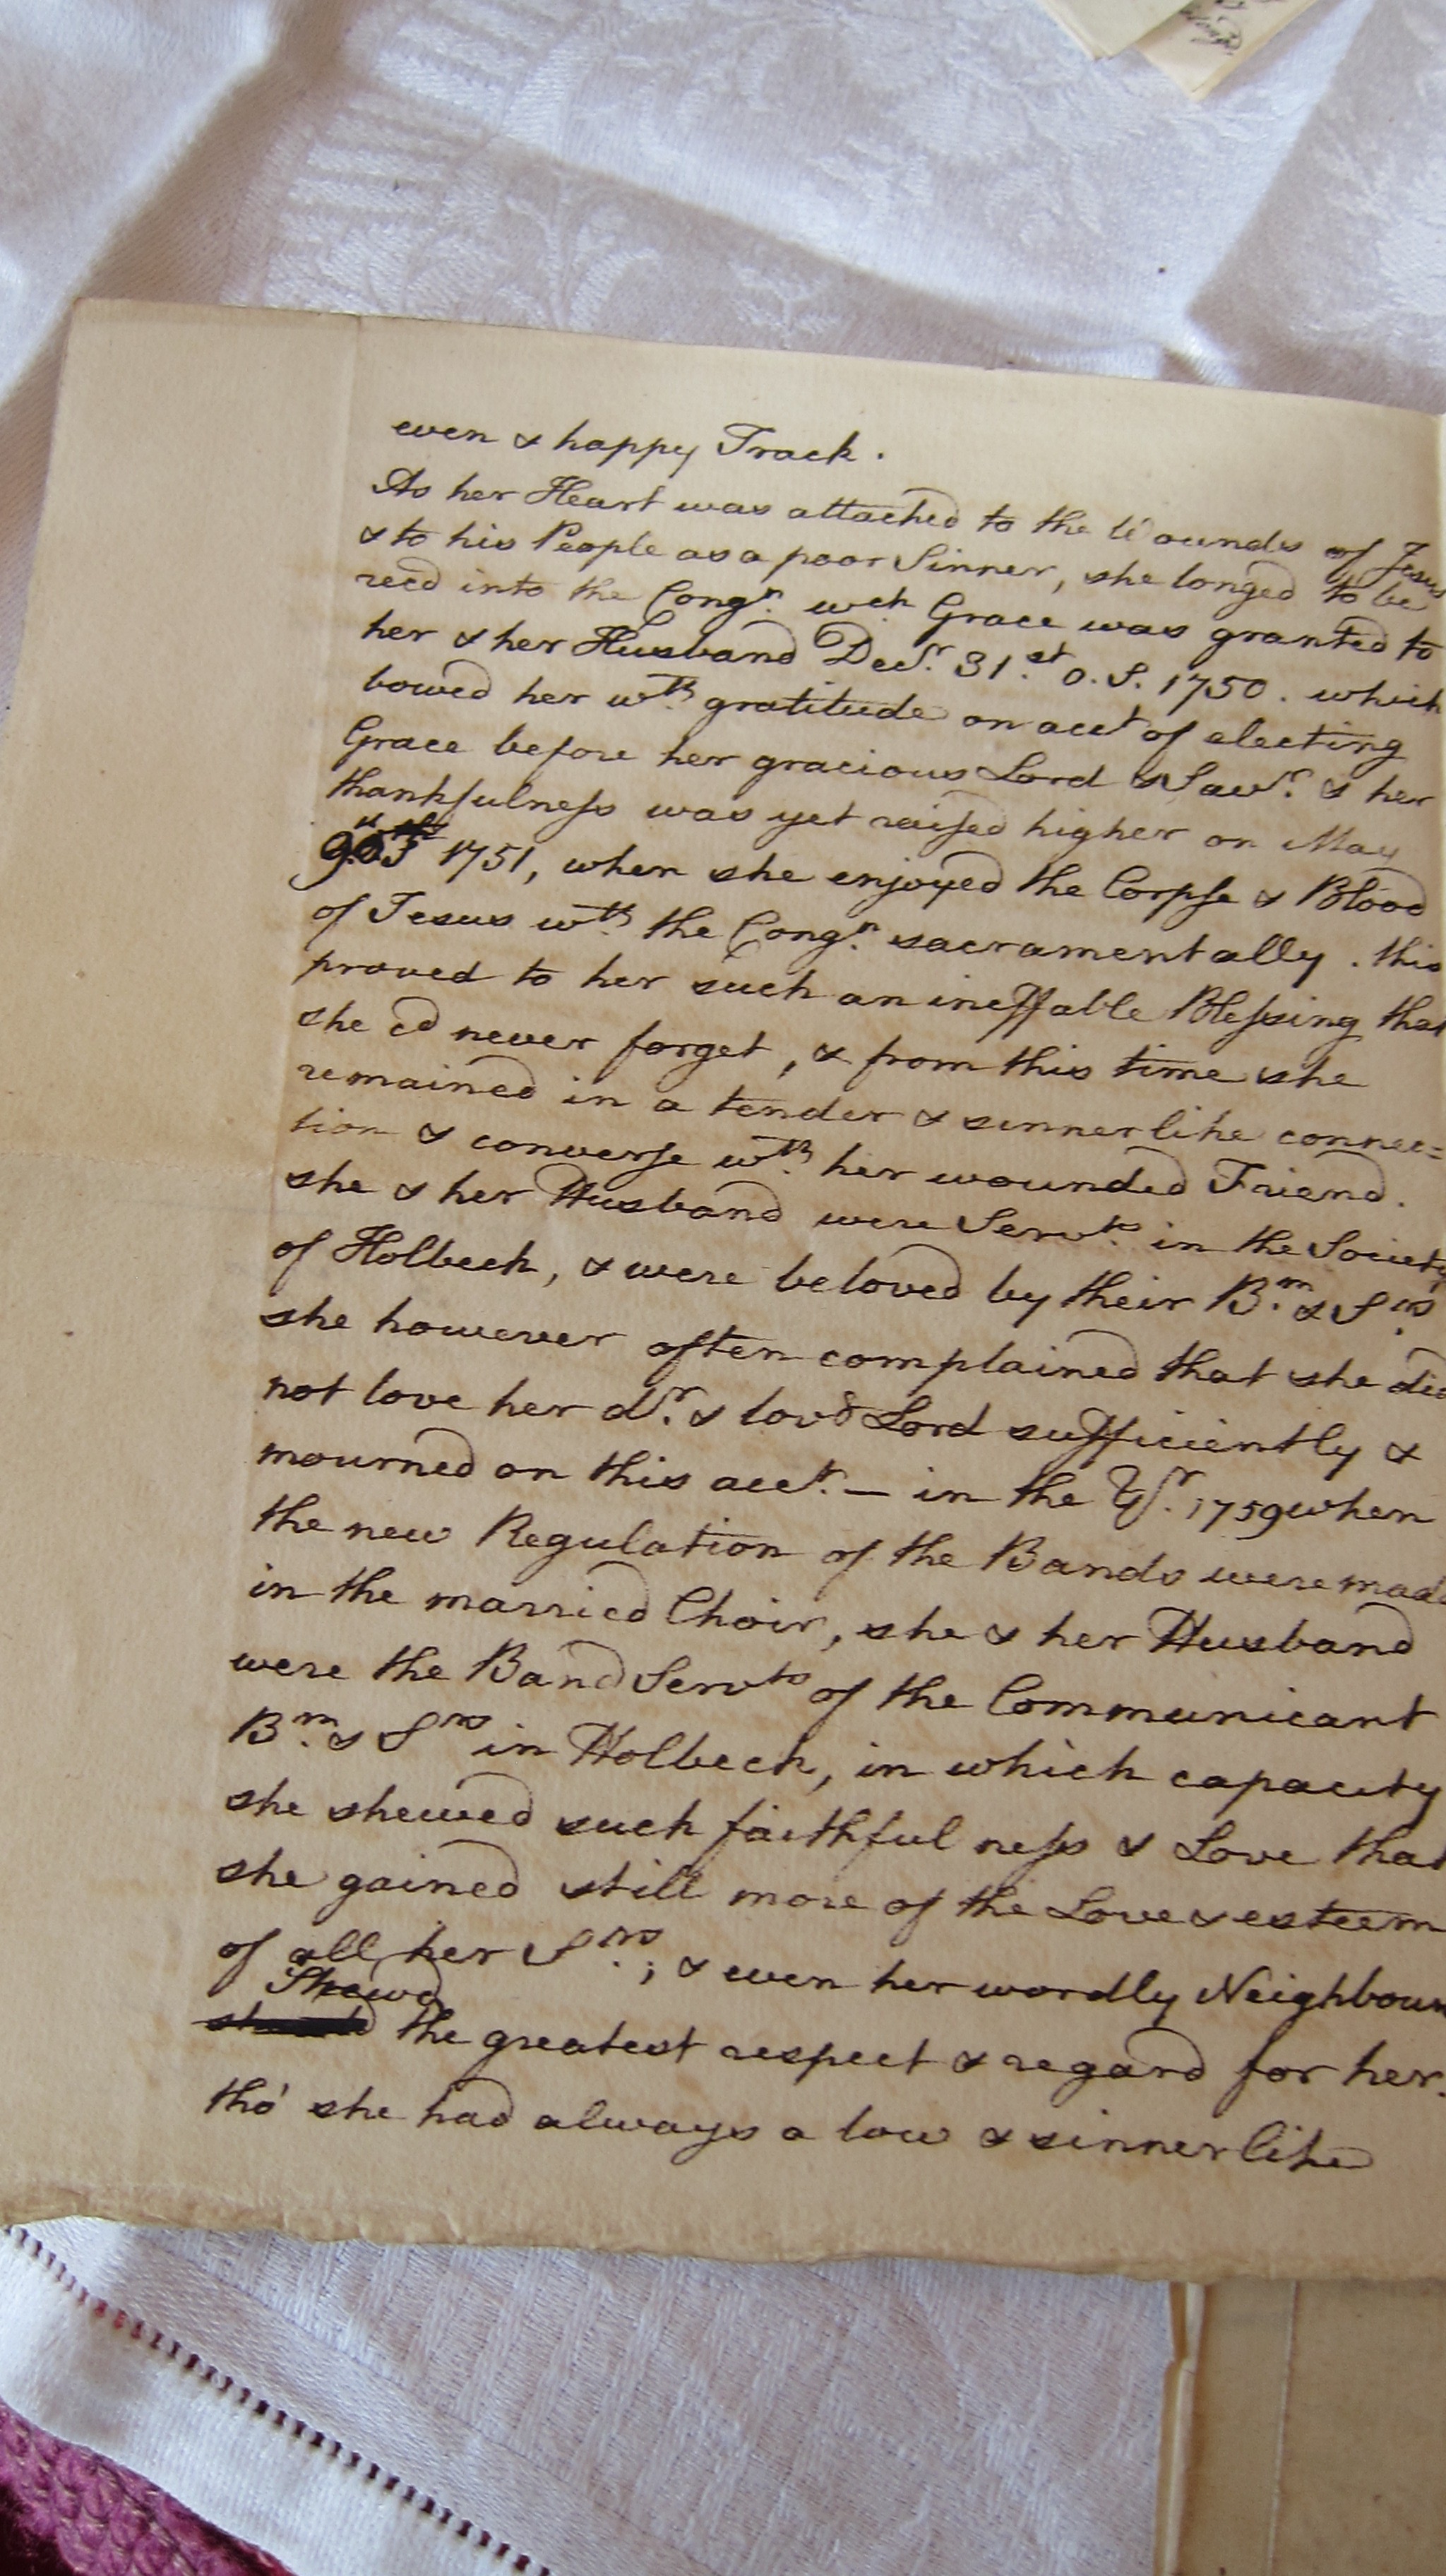 even & happy Track.
As her Heart was attached to the Wounds of Jesus
& to his People as a poor Sinner, she longed to be
recd into the Congn. wch Grace was granted to
her & her Husband Decr. 31st. O.S. 1750. which
bowed her wth. gratitude on acct of electing
Grace before her gracious Lord & Savr. & her
thankfulness was yet raised higher on May
1751, when she enjoyed the Corpse & Blood
of Jesus wth. the Congn. sacramentally. this
proved to her such an ineffable Blessing that
she cd never forget, & from this time she
remained in a tender & sinnerlike connec=
tion & converse wth. her wounded Friend.
she & her Husband were Servts. in the Society
of Holbeck, & were beloved by their Brn. & Srs.
she however often complained that she did
not love her dr. & lovd Lord sufficiently &
mourned on this acct. — in the Yr. 1759 when
the new Regulation of the Bands were made
in the married Choir, she & her Husband
were the Band Servts of the Communicant
Brn. & Srs in Holbeck, in which capacity
she shewed such faithfulness & Love that
she gained still more of the Love & esteem
of all her Srs.; & even her wordly Neighbours
Shewd
the greatest respect & regard for her.
tho' she had always a low & sinnerlike